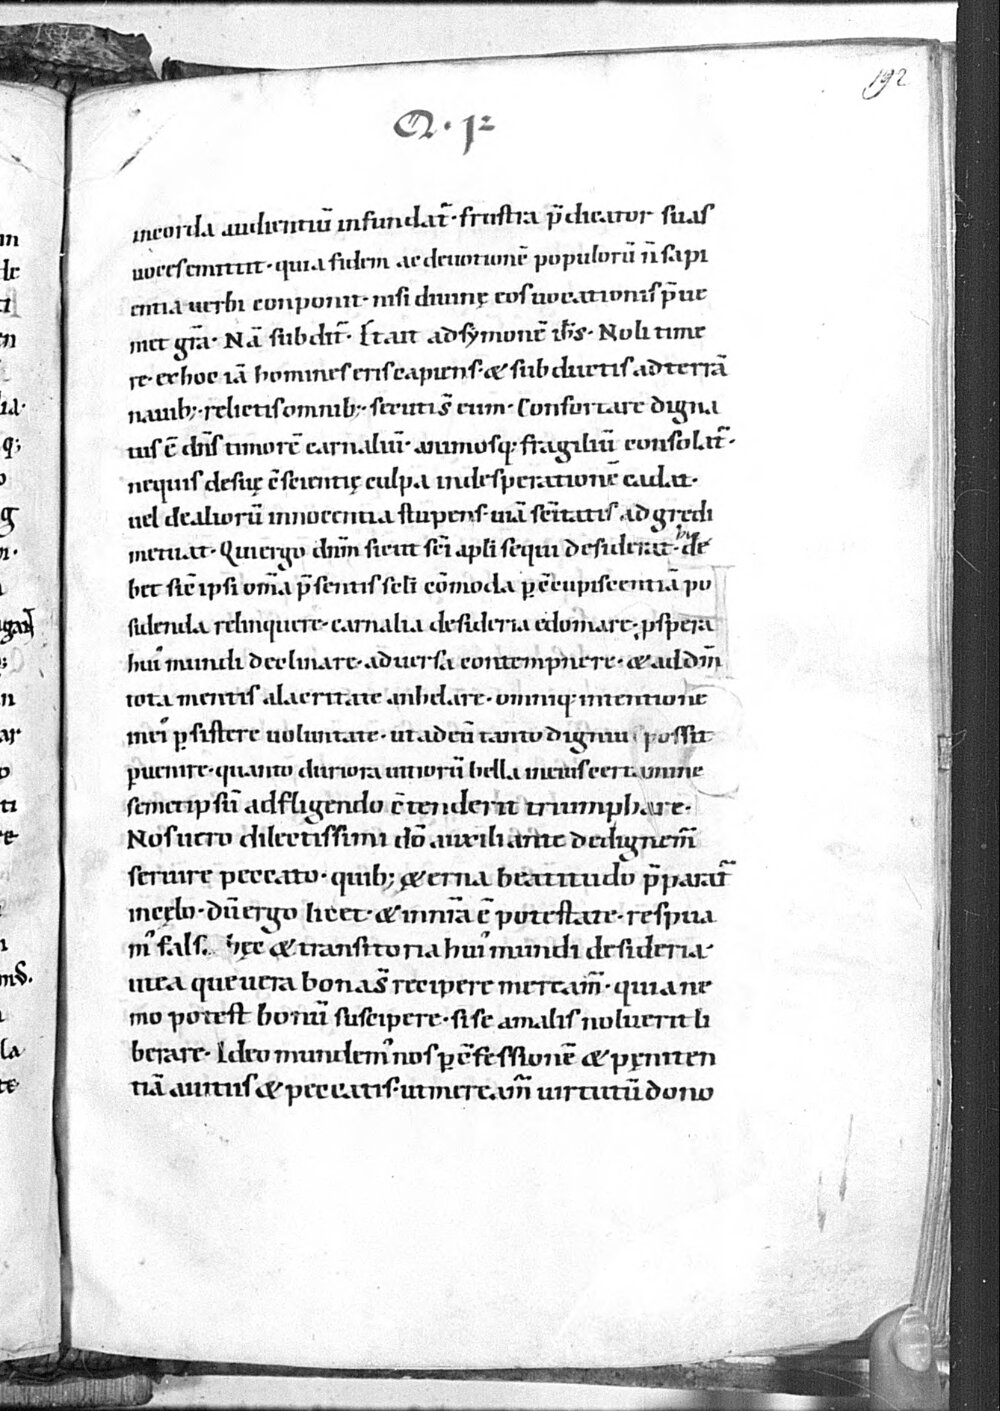 192
Q · p²
incorda audientiū infundat᷑· frustra p̄dicator suas
uoces emittit· quia fidem ac deuotionē populorū n̄ sapi
entia uerbi conponit· nisi diuinę eos uocationis p̄ue
met gr̄a· Nā subdit᷑· Et ait ad symonē ih̄s· Noli time
re· ex hoc iā homines eris capiens· & subductis ad terrā
nauib;· relictis omnib;· secuti s̄ eum· Confortare digna
tus ē dn̄s timorē carnaliū· animosq; fragiliū consolat᷑·
nequis de suę c̄scientię culpa in desperationē cadat·
uel de aliorū innocentia stupens· uiā sc̄itatis adgredi
metuat· Qui ergo dn̄m sicut sc̄i apl̄i sequi desiderat· de
bet sic̄ ipsi om̄a p̄sentis scl̄i cōmoda p̱ c̄cupiscentiā po
sidenda relinquere· carnalia desideria edomare· ꝓspera
hui᷒ mundi declinare· aduersa contempnere· & ad dn̄m
tota mentis alacritate anhelare· omniq; intentione
in ei᷒ p̱sistere uoluntate· ut ad eū tanto dignius possit
p̱uenire· quanto duriora uitiorū bella in eius certamine
semetipsū adfligendo c̄tenderit triumphare·
Nos uero dilectissimi dō auxiliante dedignem᷑
seruire peccato· quib; ęterna beatitudo p̄parat᷑
in cęlo· Dū ergo licet· & in nr̄a ē potestate· respua
m᷒ falsa hęc & transitoria hui᷒ mundi desideria·
ut ea que uera bona s̄ recipere meream᷑· quia ne
mo potest bonū suscipere· si se a malis noluerit li
berare· Ideo mundem᷒ nos p̱ c̄fessionē & pęniten
tiā a uitiis & peccatis· ut meream᷑ uirtutū dono